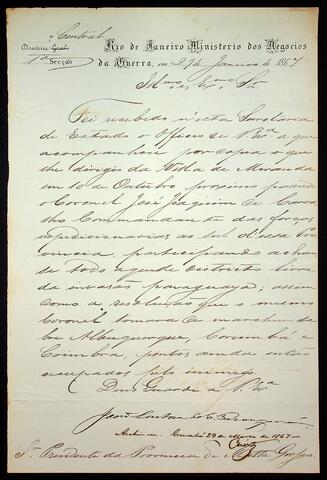 Central
Directoria Geral
1ª Secção
Rio de Janeiro Ministerio dos Negocios
da Guerra, em 27 de Janeiro de 1867
Illmo e Exmo Sr.
Foi recebido n'esta Secretaria
de Estado o Officio de V. Exa a que
acompanhou por copia o que
lhe dirigio da Villa de Miranda
em 10 de Outubro proximo passado
o Coronel José Joaquim de Carva
lho Commandante das forças
expedicionarias ao sul d'essa Pro
vincia, participando achar
se todo aquelle districto livre
da invasão paraguaya; assim
como a resolução que o mesmo
Coronel tomara de marchar so
bre Albuquerque, Corumbá e
Coimbra, pontos ainda então
occupados pelo inimigo.
Deus Guarde a V. Exa
João Lustosa da Cª Paranaguá
Cuiabá 29 de Março de 1867
Sr. Presidente da Provincia de Matto Grosso